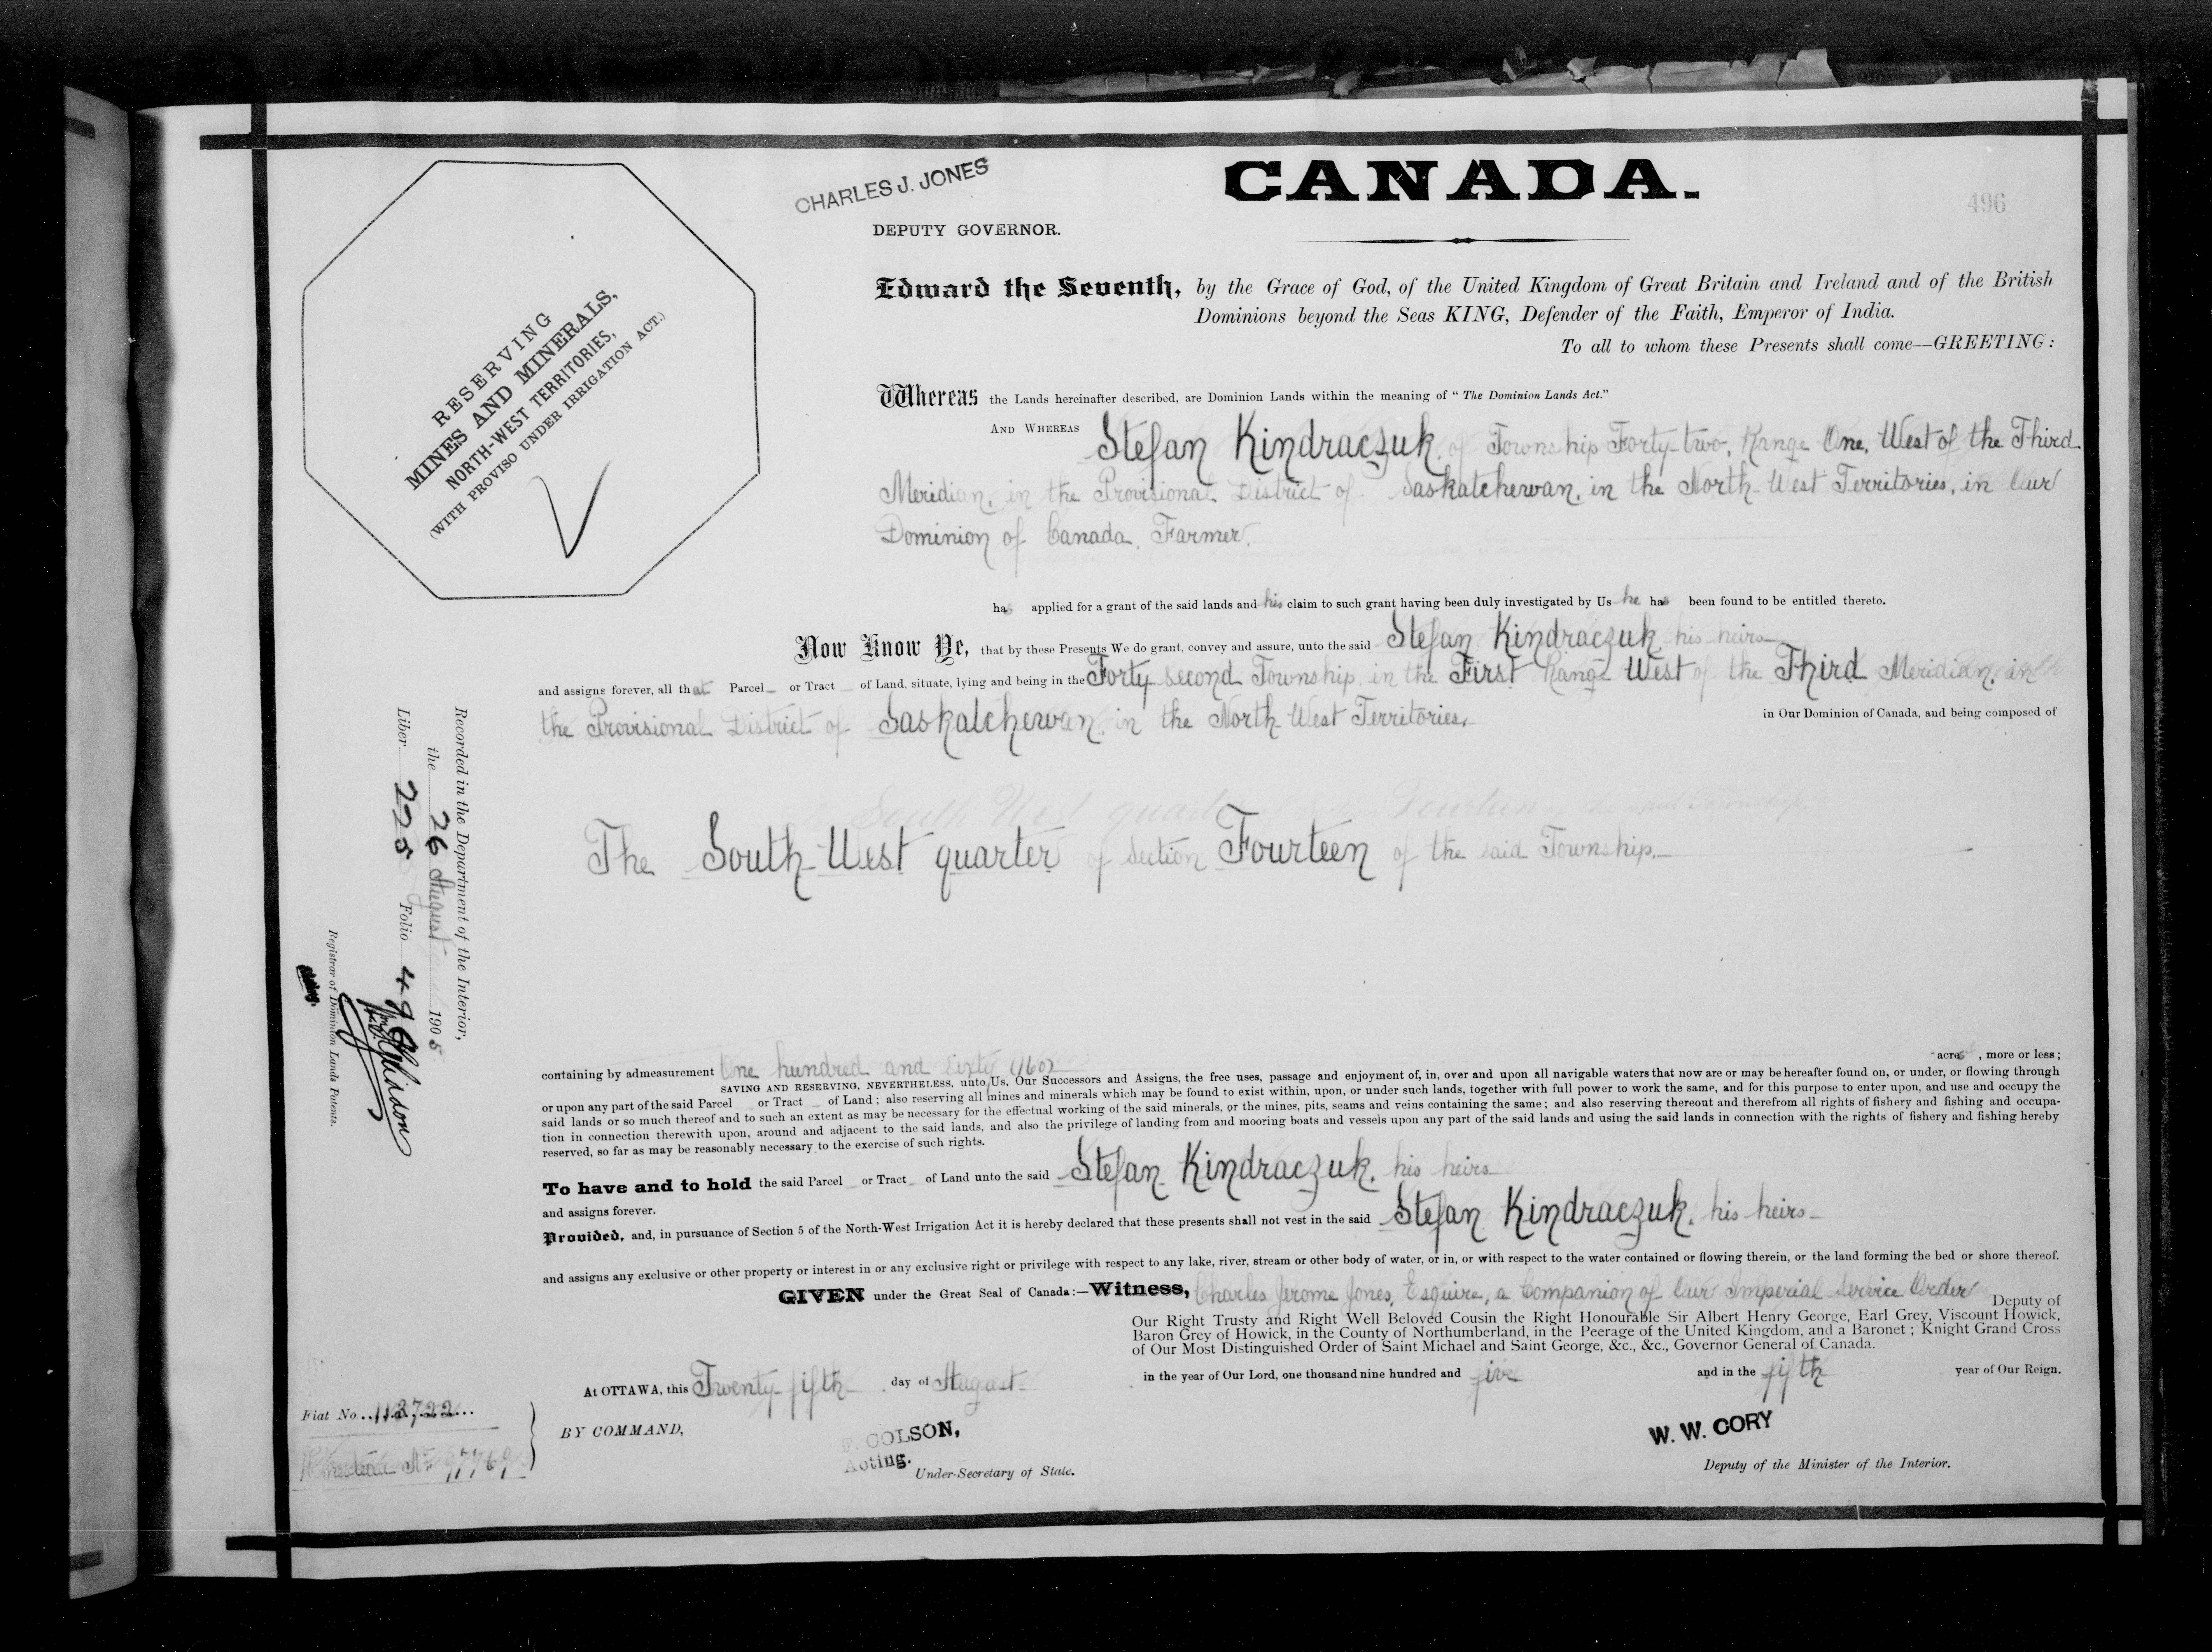 CHARLES J. JONES
CANADA.
496
DEPUTY GOVERNOR.
RESERVING
MINES AND MINERALS,
NORTH-WEST TERRITORIES,
(WITH PROVISO UNDER IRRIGATION ACT.)
Edward the Seventh, by the Grace of God, of the United Kingdom of Great Britain and Ireland and of the British
Dominions beyond the Seas KING, Defender of the Faith, Emperor of India.
To all to whom these Presents shall come—GREETING:
Whereas the Lands hereinafter described, are Dominion Lands within the meaning of "The Dominion Lands Act."
AND WHEREAS Stefan Kindraczuk, of Township Forty-two, Range One, West of the Third
Meridian, in the Provisional District of Saskatchewan, in the North-West Territories, in Our
Dominion of Canada, Farmer.
has applied for a grant of the said lands and his claim to such grant having been duly investigated by Us he has been found to be entitled thereto.
Now Know Ye, that by these Presents We do grant, convey and assure, unto the said Stefan Kindraczuk, his heirs
and assigns forever, all that Parcel or Tract of Land, situate, lying and being in the Forty second Township, in the First Range West of the Third Meridian, in
the Provisional District of Saskatchewan, in the North-West Territories, in Our Dominion of Canada, and being composed of
The South-West quarter of Section Fourteen of the said Township.
containing by admeasurement One hundred and sixty (160) acres, more or less;
SAVING AND RESERVING, NEVERTHELESS, unto Us, Our Successors and Assigns, the free uses, passage and enjoyment of, in, over and upon all navigable waters that now are or may be hereafter found on, or under, or flowing through
or upon any part of the said Parcel or Tract of Land; also reserving all mines and minerals which may be found to exist within, upon, or under such lands, together with full power to work the same, and for this purpose to enter upon, and use and occupy the
said lands or so much thereof and to such an extent as may be necessary for the effectual working of the said minerals, or the mines, pits, seams and veins containing the same; and also reserving thereout and therefrom all rights of fishery and fishing and occupa-
tion in connection therewith upon, around and adjacent to the said lands, and also the privilege of landing from and mooring boats and vessels upon any part of the said lands and using the said lands in connection with the rights of fishery and fishing hereby
reserved, so far as may be reasonably necessary to the exercise of such rights.
To have and to hold the said Parcel or Tract of Land unto the said Stefan Kindraczuk, his heirs
and assigns forever.
Provided, and, in pursuance of Section 5 of the North-West Irrigation Act it is hereby declared that these presents shall not vest in the said Stefan Kindraczuk, his heirs
and assigns any exclusive or other property or interest in or any exclusive right or privilege with respect to any lake, river, stream or other body of water, or in, or with respect to the water contained or flowing therein, or the land forming the bed or shore thereof.
GIVEN under the Great Seal of Canada:—Witness, Charles Jerome Jones, Esquire, a Companion of Our Imperial Service Order Deputy of
Our Right Trusty and Right Well Beloved Cousin the Right Honourable Sir Albert Henry George, Earl Grey, Viscount Howick,
Baron Grey of Howick, in the County of Northumberland, in the Peerage of the United Kingdom, and a Baronet; Knight Grand Cross
of Our Most Distinguished Order of Saint Michael and Saint George, &c., &c., Governor General of Canada.
At OTTAWA, this Twenty-fifth day of August in the year of Our Lord, one thousand nine hundred and five and in the fifth year of Our Reign.
BY COMMAND,
F. COLSON,
Acting.
Under-Secretary of State.
W. W. CORY
Deputy of the Minister of the Interior.
Fiat No. 113722
Recorded in the Department of the Interior,
the 26 August 1905
Liber 225 Folio 496
Registrar of Dominion Lands Patents.
Acting.